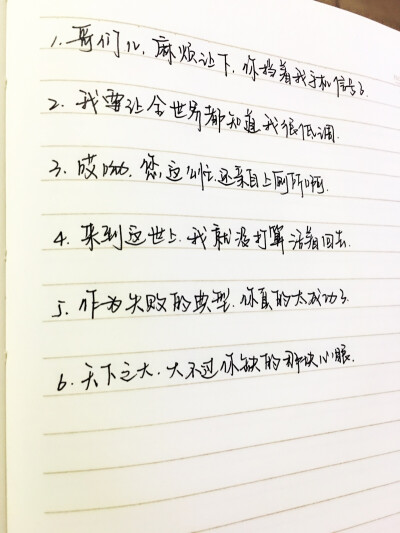 1. 哥们儿, 麻烦让下, 你挡着我手机信号了
2. 我要让全世界都知道我很低调.
3. 哎呦, 您这么忙, 还亲自上厕所啊.
4. 来到这世上, 我就没打算活着回去.
5. 作为失败的典型, 你真的太成功了
6. 天下之大, 大不过你缺的那块心眼.